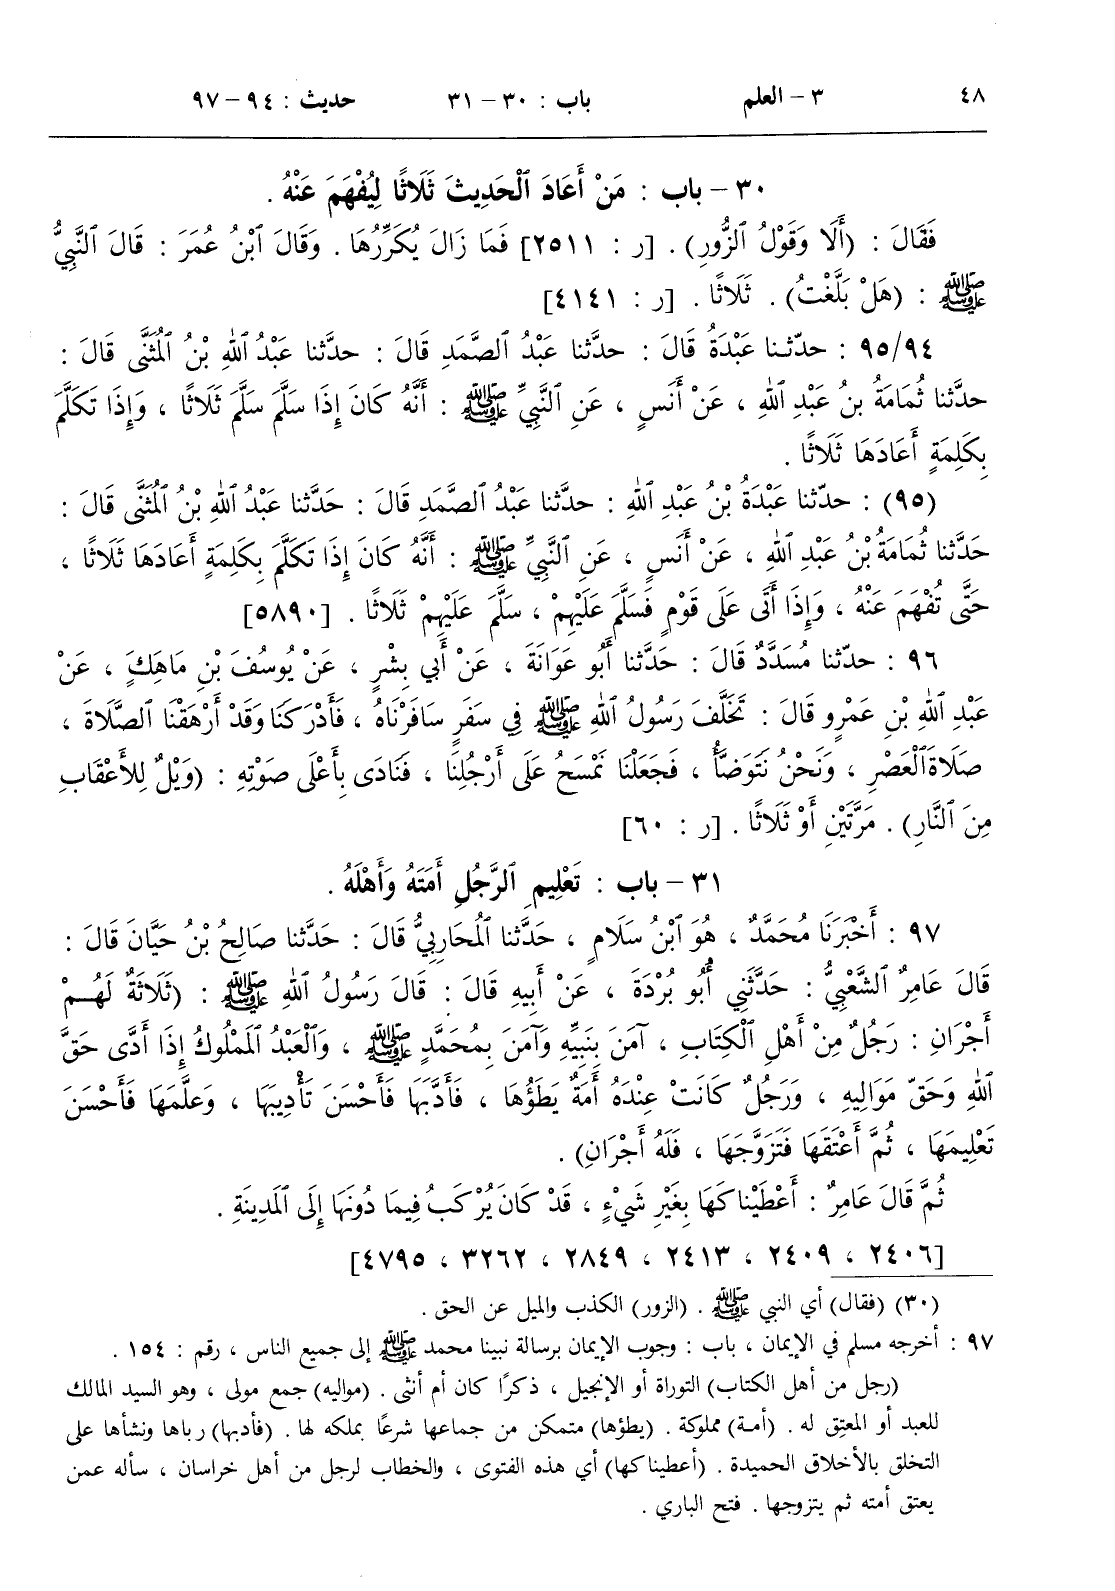 ٤٨ ٣ – العلم باب : ٣٠ – ٣١ حديث : ٩٤ – ٩٧
٣٠ – باب : مَنْ أَعَادَ ٱلْحَدِيثَ ثَلَاثًا لِيُفْهَمَ عَنْهُ .
فَقَالَ : (أَلَا وَقَوْلُ ٱلزُّورِ) . [ر : ٢٥١١] فَمَا زَالَ يُكَرِّرُهَا . وَقَالَ ٱبْنُ عُمَرَ : قَالَ ٱلنَّبِيُّ
ﷺ : (هَلْ بَلَّغْتُ) . ثَلَاثًا . [ر : ٤١٤١]
٩٥/٩٤ : حدّثنا عَبْدَةُ قَالَ : حدَّثنا عَبْدُ ٱلصَّمَدِ قَالَ : حدَّثنا عَبْدُ ٱللهِ بْنُ ٱلْمُثَنَّى قَالَ :
حدَّثنا ثُمَامَةُ بنُ عَبْدِ ٱللهِ ، عَنْ أَنَسٍ ، عَنِ ٱلنَّبِيِّ ﷺ : أَنَّهُ كَانَ إِذَا سَلَّمَ سَلَّمَ ثَلَاثًا ، وَإِذَا تَكَلَّمَ
بِكَلِمَةٍ أَعَادَهَا ثَلَاثًا .
(٩٥) : حدّثنا عَبْدَةُ بْنُ عَبْدِ ٱللهِ : حدَّثنا عَبْدُ ٱلصَّمَدِ قَالَ : حَدَّثنا عَبْدُ ٱللهِ بْنُ ٱلْمُثَنَّى قَالَ :
حَدَّثنا ثُمَامَةُ بْنُ عَبْدِ ٱللهِ ، عَنْ أَنَسٍ ، عَنِ ٱلنَّبِيِّ ﷺ : أَنَّهُ كَانَ إِذَا تَكَلَّمَ بِكَلِمَةٍ أَعَادَهَا ثَلَاثًا ،
حَتَّى تُفْهَمَ عَنْهُ ، وَإِذَا أَتَى عَلَى قَوْمٍ فَسَلَّمَ عَلَيْهِمْ ، سَلَّمَ عَلَيْهِمْ ثَلَاثًا . [٥٨٩٠]
٩٦ : حدّثنا مُسَدَّدٌ قَالَ : حَدَّثنا أَبُو عَوَانَةَ ، عَنْ أَبِي بِشْرٍ ، عَنْ يُوسُفَ بْنِ مَاهَكَ ، عَنْ
عَبْدِ ٱللهِ بْنِ عَمْرٍو قَالَ : تَخَلَّفَ رَسُولُ ٱللهِ ﷺ فِي سَفَرٍ سَافَرْنَاهُ ، فَأَدْرَكَنَا وَقَدْ أَرْهَقْنَا ٱلصَّلَاةَ ،
صَلَاةَ ٱلْعَصْرِ ، وَنَحْنُ نَتَوَضَّأُ ، فَجَعَلْنَا نَمْسَحُ عَلَى أَرْجُلِنَا ، فَنَادَى بِأَعْلَى صَوْتِهِ : (وَيْلٌ لِلْأَعْقَابِ
مِنَ ٱلنَّارِ) . مَرَّتَيْنِ أَوْ ثَلَاثًا . [ر : ٦٠]
٣١ – باب : تَعْلِيمِ ٱلرَّجُلِ أَمَتَهُ وَأَهْلَهُ .
٩٧ : أَخْبَرَنَا مُحَمَّدٌ ، هُوَ ٱبْنُ سَلَامٍ ، حَدَّثنا ٱلْمُحَارِبِيُّ قَالَ : حَدَّثنا صَالِحُ بْنُ حَيَّانَ قَالَ :
قَالَ عَامِرٌ ٱلشَّعْبِيُّ : حَدَّثَنِي أَبُو بُرْدَةَ ، عَنْ أَبِيهِ قَالَ : قَالَ رَسُولُ ٱللهِ ﷺ : (ثَلَاثَةٌ لَهُمْ
أَجْرَانِ : رَجُلٌ مِنْ أَهْلِ ٱلْكِتَابِ ، آمَنَ بِنَبِيِّهِ وَآمَنَ بِمُحَمَّدٍ ﷺ ، وَٱلْعَبْدُ ٱلْمَمْلُوكُ إِذَا أَدَّى حَقَّ
ٱللهِ وَحَقَّ مَوَالِيهِ ، وَرَجُلٌ كَانَتْ عِنْدَهُ أَمَةٌ يَطَؤُهَا ، فَأَدَّبَهَا فَأَحْسَنَ تَأْدِيبَهَا ، وَعَلَّمَهَا فَأَحْسَنَ
تَعْلِيمَهَا ، ثُمَّ أَعْتَقَهَا فَتَزَوَّجَهَا ، فَلَهُ أَجْرَانِ) .
ثُمَّ قَالَ عَامِرٌ : أَعْطَيْنَاكَهَا بِغَيْرِ شَيْءٍ ، قَدْ كَانَ يُرْكَبُ فِيمَا دُونَهَا إِلَى ٱلْمَدِينَةِ .
[٢٤٠٦ ، ٢٤٠٩ ، ٢٤١٣ ، ٢٨٤٩ ، ٣٢٦٢ ، ٤٧٩٥]
(٣٠) (فقال) أي النبي ﷺ . (الزور) الكذب والميل عن الحق .
٩٧ : أخرجه مسلم في الإيمان ، باب : وجوب الإيمان برسالة نبينا محمد ﷺ إلى جميع الناس ، رقم : ١٥٤ .
(رجل من أهل الكتاب) التوراة أو الإنجيل ، ذكرًا كان أم أنثى . (مواليه) جمع مولى ، وهو السيد المالك
للعبد أو المعتِق له . (أمة) مملوكة . (يطؤها) متمكن من جماعها شرعًا بملكه لها . (فأدبها) رباها ونشأها على
التخلق بالأخلاق الحميدة . (أعطيناكها) أي هذه الفتوى ، والخطاب لرجل من أهل خراسان ، سأله عمن
يعتق أمته ثم يتزوجها . فتح الباري .